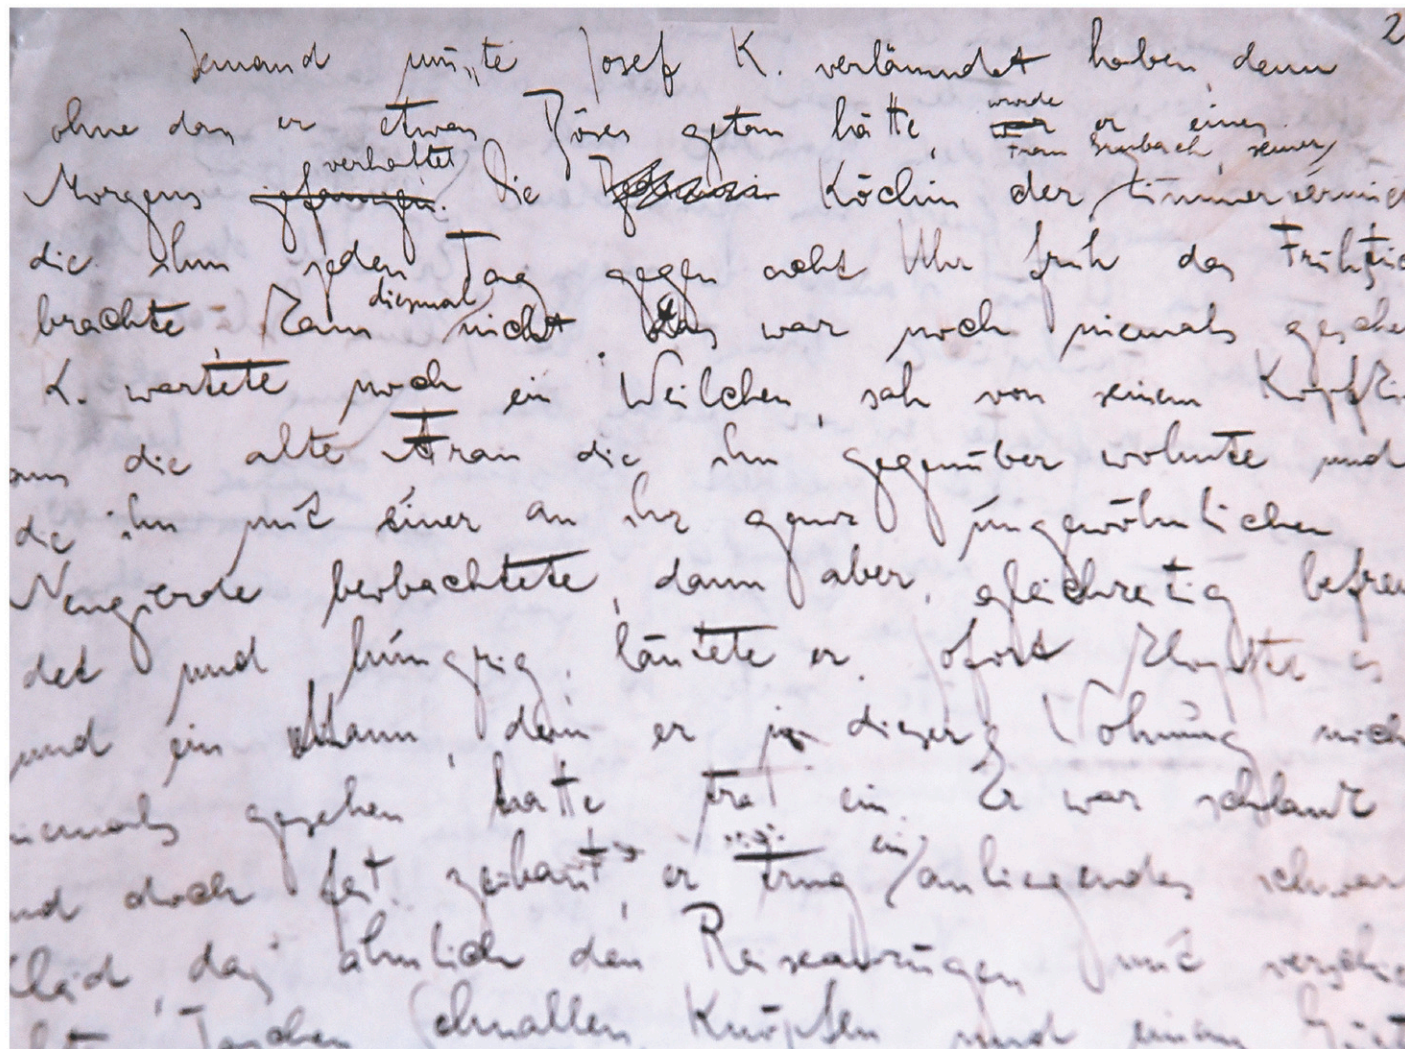 2
Jemand musste Josef K. verläumdet haben, denn
ohne dass er etwas Böses getan hätte, war wurde er eines
Morgens gefangen verhaftet. Die Köchin der Frau Grubach, seiner Zimmervermie
die ihm jeden Tag gegen acht Uhr früh das Frühstüc
brachte, kam diesmal nicht. Das war noch niemals gesche
K. wartete noch ein Weilchen, sah von seinem Kopfki
aus die alte Frau die ihm gegenüber wohnte und
die ihn mit einer an ihr ganz ungewöhnlichen
Neugierde beobachtete, dann aber, gleichzeitig befrem
det und hungrig, läutete er. Sofort klopfte es
und ein Mann, den er in dieser Wohnung noch
niemals gesehen hatte trat ein. Er war schlank
nd doch fest gebaut, er trug ein anliegendes schwar
Kleid, das ähnlich den Reiseanzügen mit verschie
Taschen Schnallen, Knöpfen und einem Gürt